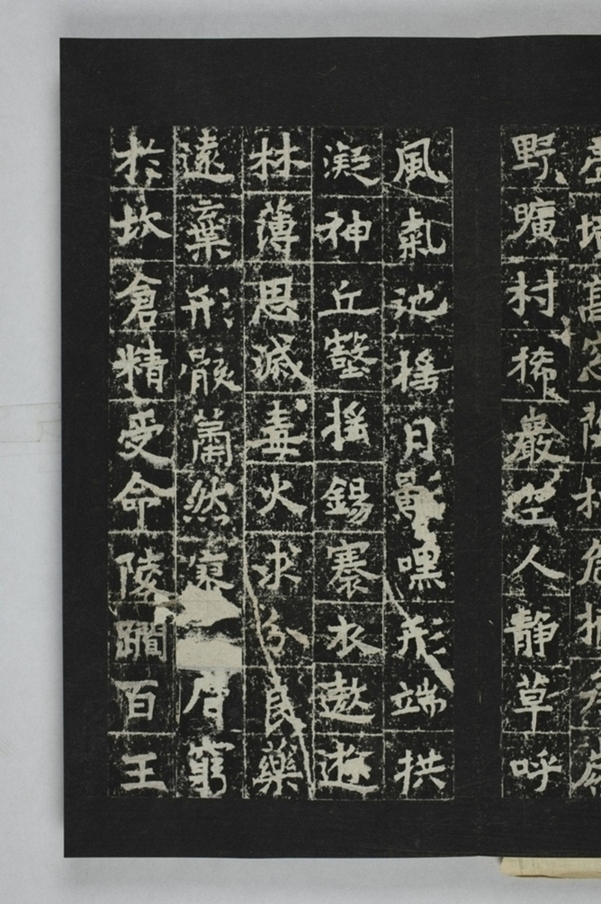 野曠村稀巖空人静草呼
風氣池搖月嘿形端拱
凝神丘壑搖錫褰衣遨遊
林薄思滅毒火求分良藥
遠棄形骸蕭然居窮
於坎倉精受命陵躙百王